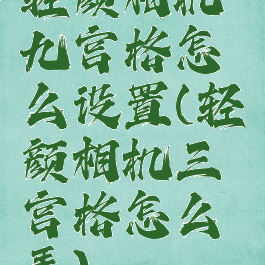 轻颜相机
九宫格怎
么设置(轻
颜相机三
宫格怎么
弄)